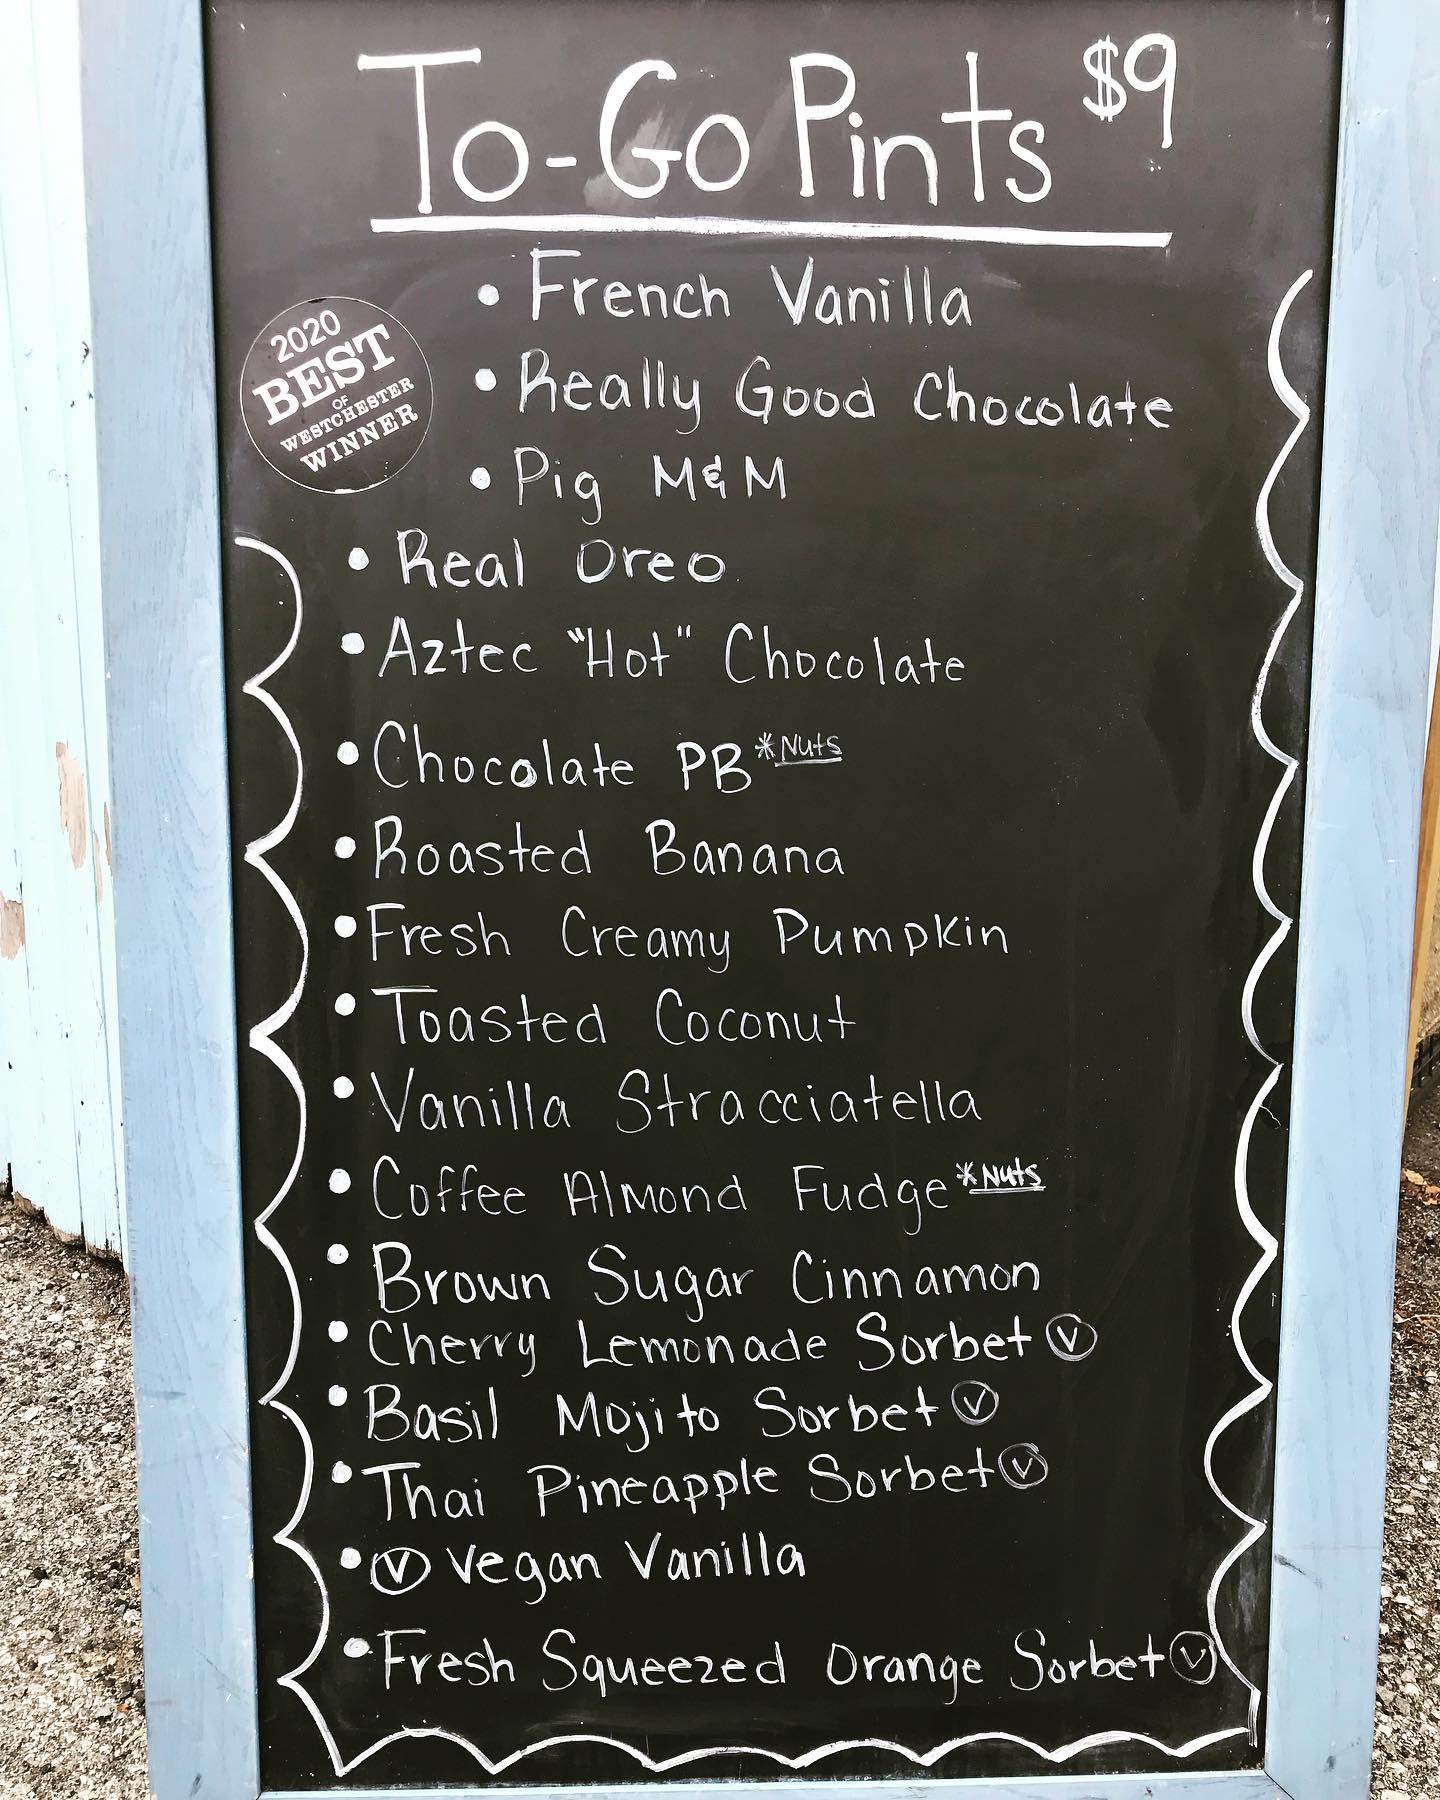 To-Go Pints $9
• French Vanilla
• Really Good Chocolate
• Pig M&M
2020
BEST
OF
WESTCHESTER
WINNER
• Real Oreo
• Aztec "Hot" Chocolate
• Chocolate PB *Nuts
• Roasted Banana
• Fresh Creamy Pumpkin
• Toasted Coconut
• Vanilla Stracciatella
• Coffee Almond Fudge *Nuts
• Brown Sugar Cinnamon
• Cherry Lemonade Sorbet Ⓥ
• Basil Mojito Sorbet Ⓥ
• Thai Pineapple Sorbet Ⓥ
• Ⓥ Vegan Vanilla
• Fresh Squeezed Orange Sorbet Ⓥ